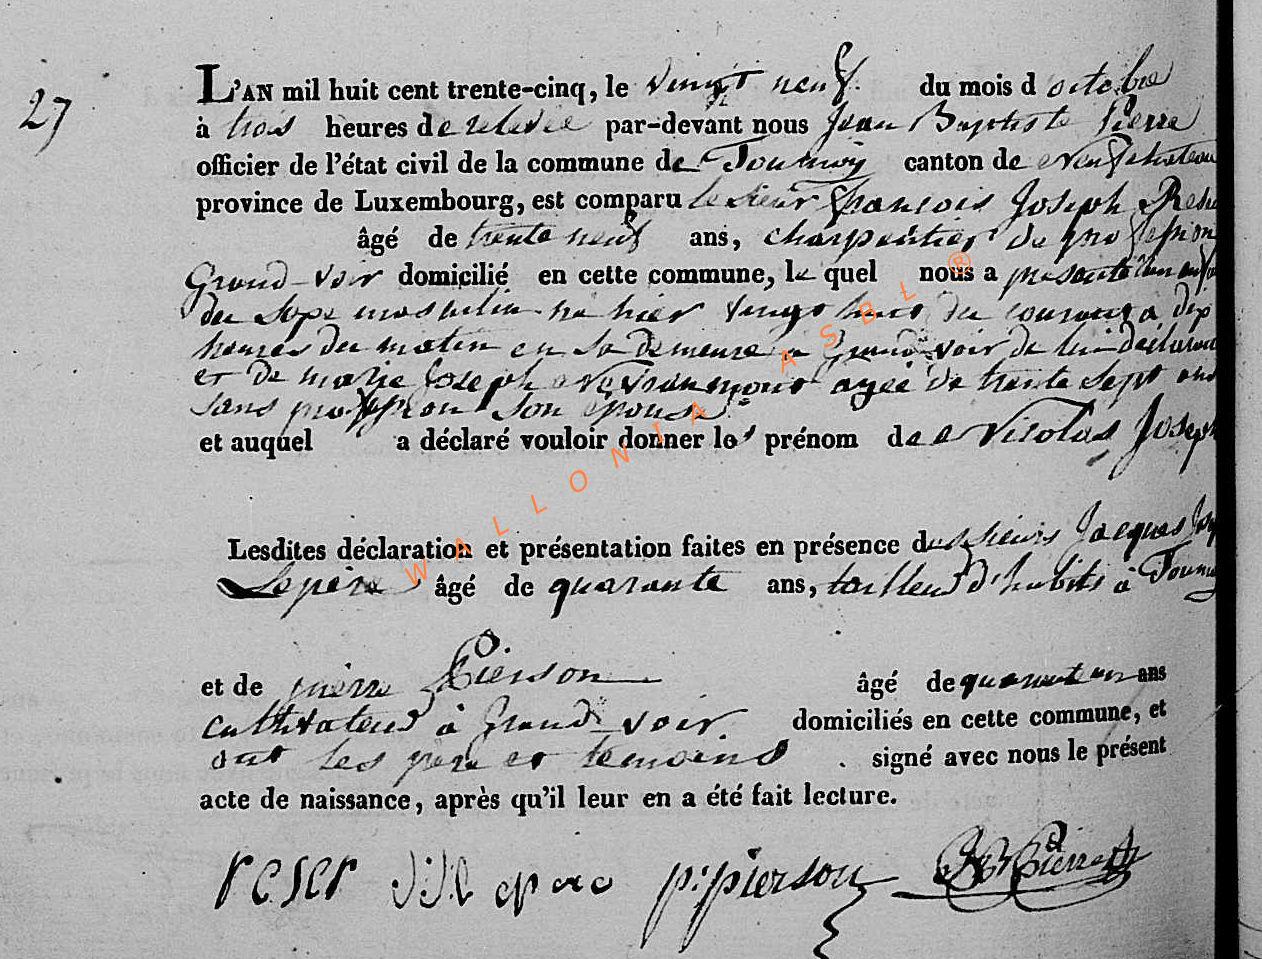 27
L'AN mil huit cent trente-cinq, le vingt neuf du mois d octobre
à trois heures de relevée par-devant nous Jean Baptiste Pierre
officier de l'état civil de la commune de Tournay canton de Neufchateau
province de Luxembourg, est comparu le sieur François Joseph
âgé de trente neuf ans, charpentier de profession
Grand-voir domicilié en cette commune, le quel nous a présenté un enfant
du sexe masculin né hier vingt huit du courant à dix
heures du matin en sa demeure à Grand-voir de lui déclarant
et de marie Joseph agée de trente sept ans
sans profession son épouse
et auquel a déclaré vouloir donner les prénom de Nicolas Joseph
Lesdites déclaration et présentation faites en présence des sieurs Jacques
Lepère âgé de quarante ans, tailleur d'habits à
et de pierre Pierson âgé de quarante un ans
cultivateur à Grand-voir domiciliés en cette commune, et
ont les père et temoins signé avec nous le présent
acte de naissance, après qu'il leur en a été fait lecture.
reser p: pierson JB Pierre
WALLONIA ASBL ®